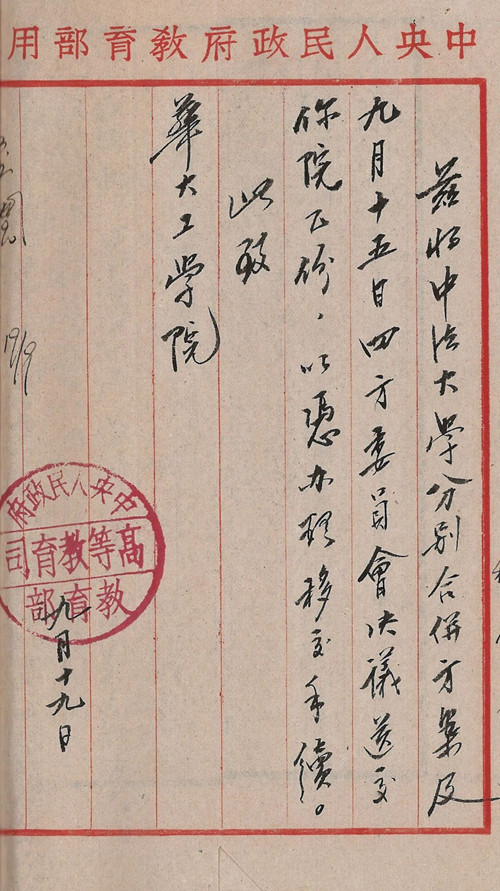 中央人民政府教育部用
茲将中法大學分别合併方案及
九月十五日四方委員會决議送交
你院乙份，以憑办理移交手續。
此致
華大工學院
中央人民政府
高等教育司
教育部
九月十九日
19/9